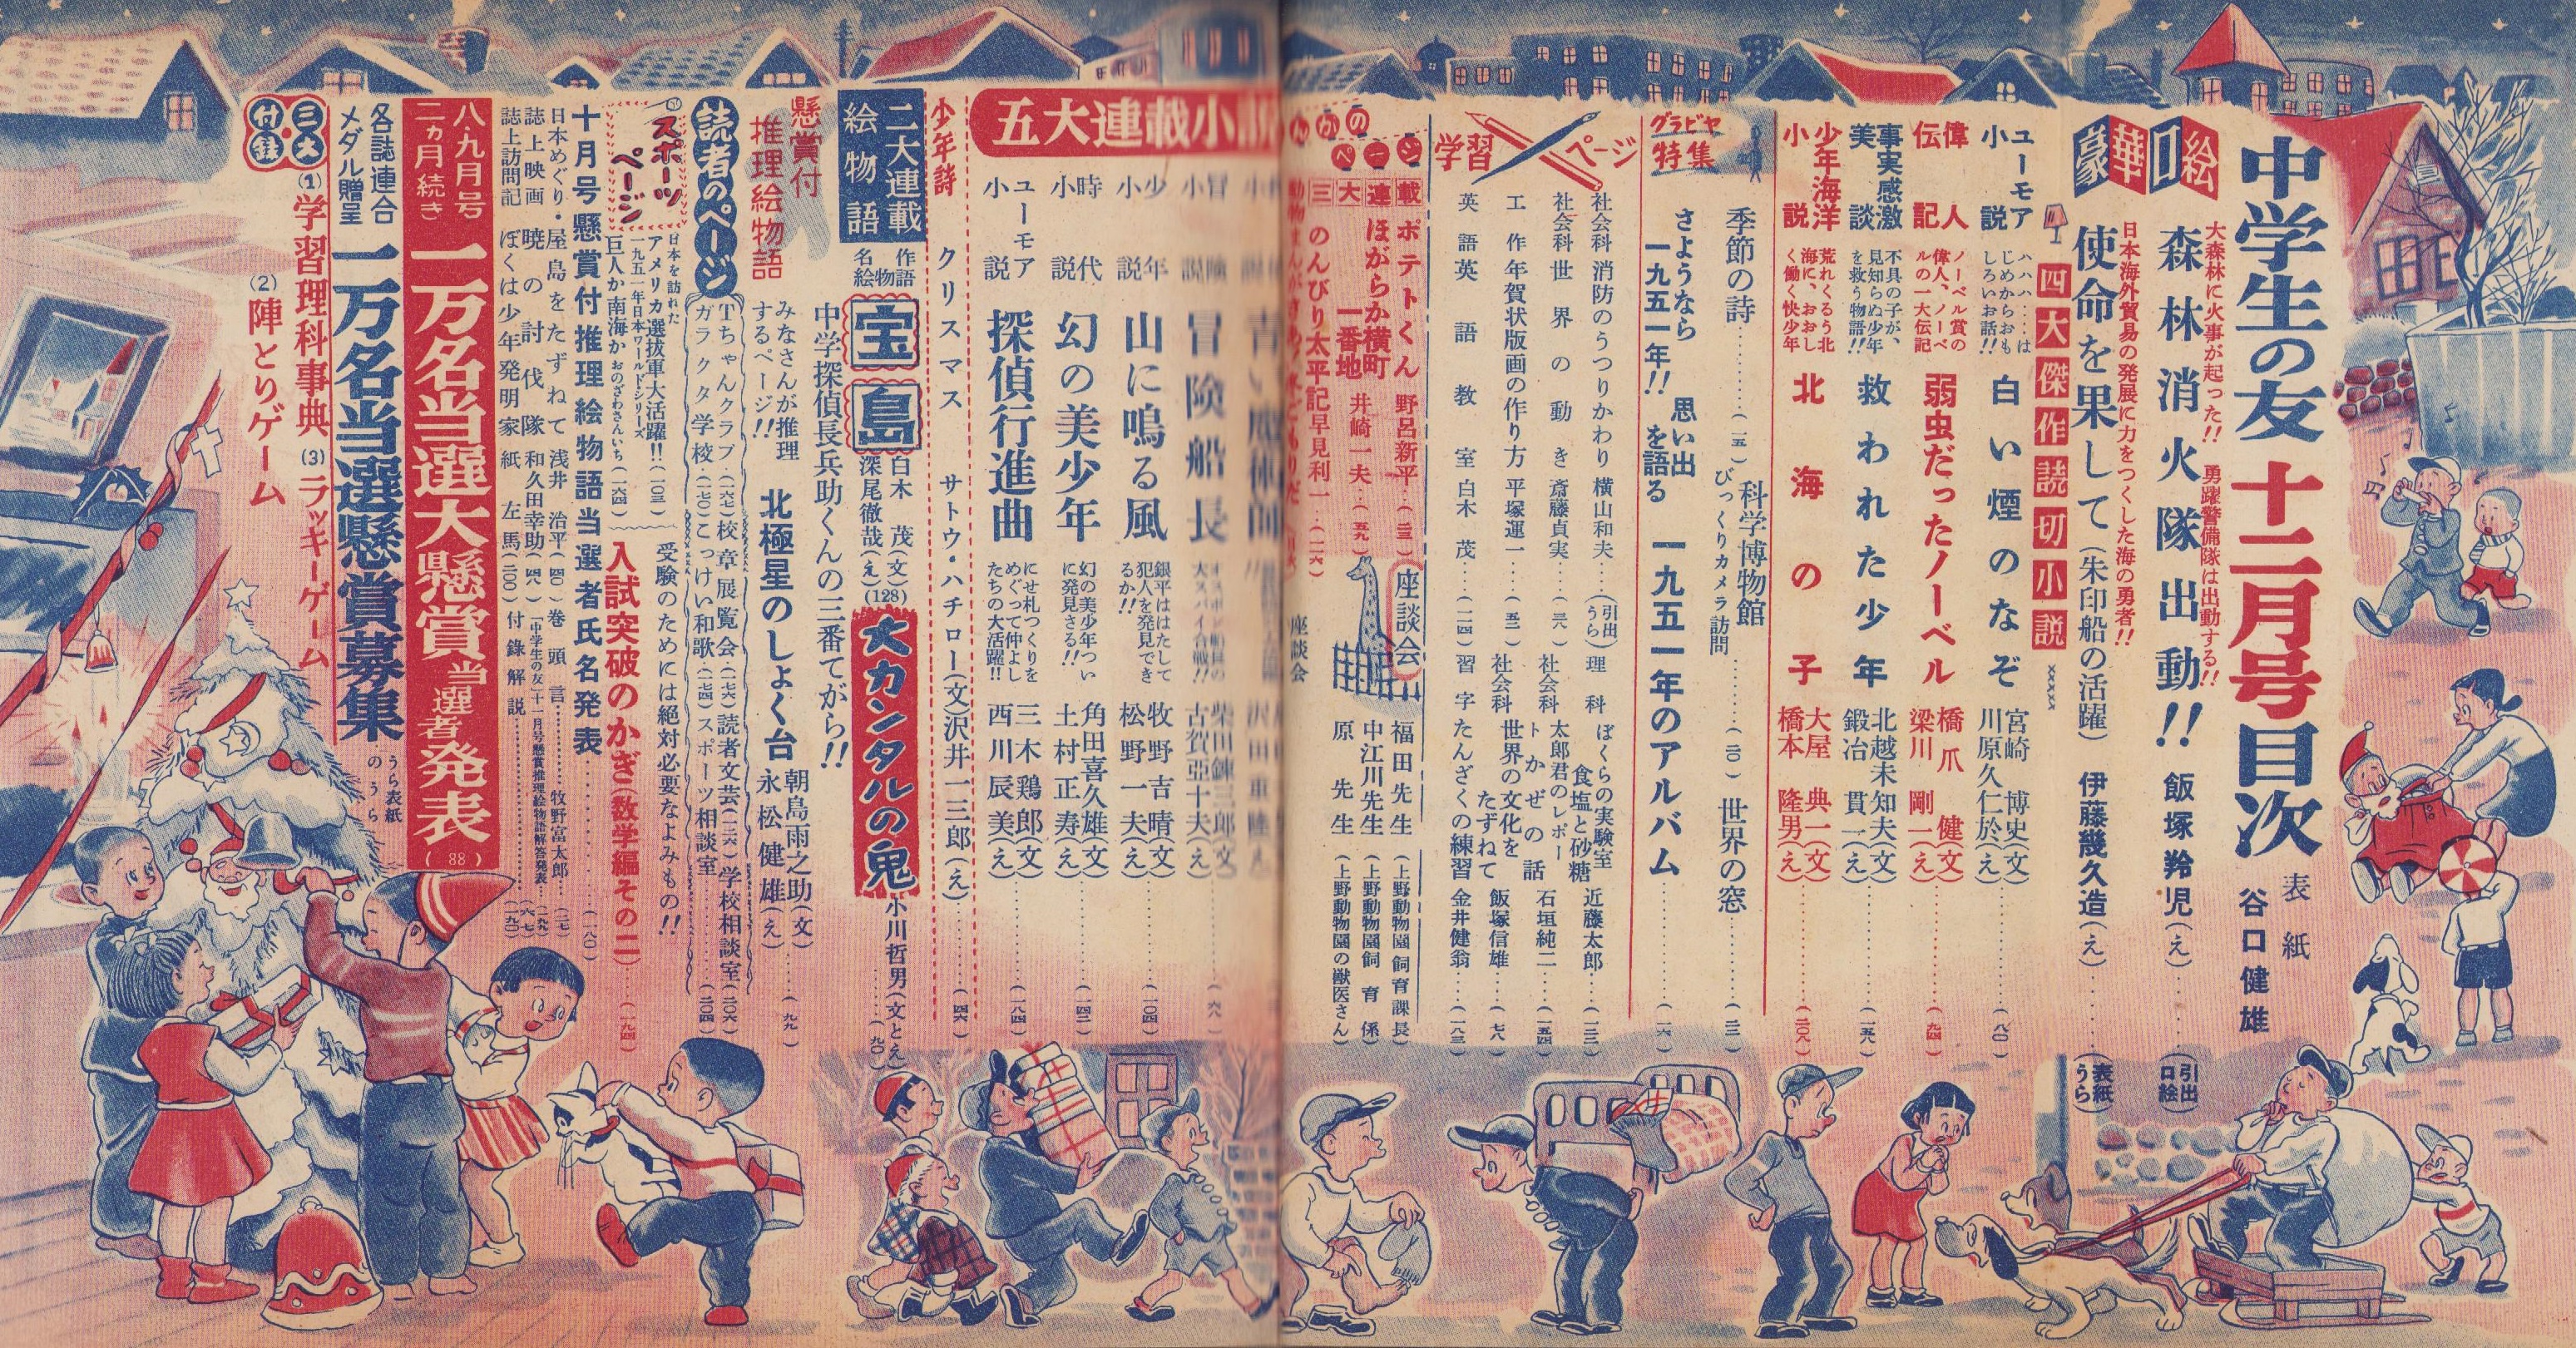 中学生の友 十二月号 目次
表紙 谷口健雄
豪華口絵
大森林に火事が起った!! 勇躍警備隊は出動する!!
森林消火隊出動!! 飯塚羚児(え)……(引出口絵)
日本海外貿易の発展に力をつくした海の勇者!!
使命を果して(朱印船の活躍) 伊藤幾久造(え)……(表紙うら)
四大傑作読切小説
ユーモア小説
ハハハ……はじめからおもしろいお話!!
白い煙のなぞ 宮崎博史(文) 川原久仁於(え)……(八〇)
偉人伝記
ノーベル賞の偉人、ノーベルの一大伝記
弱虫だったノーベル 橋爪健(文) 梁川剛一(え)……(九四)
事実感激美談
不具の子が、見知らぬ少年を救う物語!!
救われた少年 北越未知夫(文) 鍛冶貫一(え)……(一五八)
少年海洋小説
荒れくるう北海に、おおしく働く快少年
北海の子 大屋典一(文) 橋本隆男(え)……(二〇八)
グラビヤ特集
季節の詩……(一五)
科学博物館
びっくりカメラ訪問……(二〇)
世界の窓……(二二)
さようなら一九五一年!!
思い出を語る 一九五一年のアルバム……(一六)
学習ページ
社会科 消防のうつりかわり 横山和夫……(引出うら)
社会科 世界の動き 斎藤貞実……(三八)
工作 年賀状版画の作り方 平塚運一……(五二)
英語 英語教室 白木茂……(一二四)
理科 ぼくらの実験室 食塩と砂糖 近藤太郎……(一三二)
社会科 太郎君のレポート かぜの話 石垣純二……(一五四)
社会科 世界の文化をたずねて 飯塚信雄……(七八)
習字 たんざくの練習 金井健翁……(一八三)
ページ
三大連載
ポテトくん 野呂新平……(三三)
ほがらか横町一番地 井崎一夫……(五九)
のんびり太平記 早見利一……(一二六)
座談会
座談会
福田先生(上野動物園飼育課長)
中江川先生(上野動物園飼育係)
原先生(上野動物園の獣医さん)
五大連載小
冒険船長
古賀亜十夫(え)……(六八)
少年小説
山に鳴る風
銀平ははたして犯人を発見できるか!!
牧野吉晴(文) 松野一夫(え)……(一〇四)
時代小説
幻の美少年
幻の美少年ついに発見さる!!
角田喜久雄(文) 土村正寿(え)……(一四二)
ユーモア小説
探偵行進曲
にせ札つくりをめぐって仲よしたちの大活躍!!
三木鶏郎(文) 西川辰美(え)……(一八四)
少年詩 クリスマス サトウ・ハチロー(文) 沢井一三郎(え)……(四六)
二大連載絵物語
名作絵物語 宝島 白木茂(文) 深尾徹哉(え)(128)
大カンタルの鬼 小川哲男(文とえ)……(九〇)
懸賞付推理絵物語
中学探偵長兵助くんの三番てがら!!
みなさんが推理するページ!!
北極星のしょく台 朝島雨之助(文) 永松健雄(え)……(九九)
読者のページ
Tちゃんクラブ(一六七) 校章展覧会(一七六) 読者文芸(一三六) 学校相談室(二〇六)
ガラクタ学校(一七〇) こっけい和歌(一七四) スポーツ相談室……(二〇四)
スポーツページ
日本を訪れたアメリカ選抜軍大活躍!!(一〇三)
一九五一年日本ワールドシリーズ
巨人か南海か おのざわさんいち(一六四)
受験のためには絶対必要なよみもの!!
入試突破のかぎ(数学編その二)……(一九四)
十月号懸賞付推理絵物語当選者氏名発表……(一八〇)
日本めぐり・屋島をたずねて 浅井治平(四〇)
誌上映画 暁の討伐隊 和久田幸助(四八)
誌上訪問記 ぼくは少年発明家 紙左馬(一〇〇)
巻頭言……牧野富太郎……(二七)
「中学生の友」十一月号懸賞推理絵物語解答発表……(二九)
付録解説……(一九〇)
八・九月号二ヵ月続き 一万名当選大懸賞当選者発表(88)
各誌連合メダル贈呈 一万名当選懸賞募集……うら表紙のうら
三大付録
(1)学習理科事典 (3)ラッキーゲーム
(2)陣とりゲーム